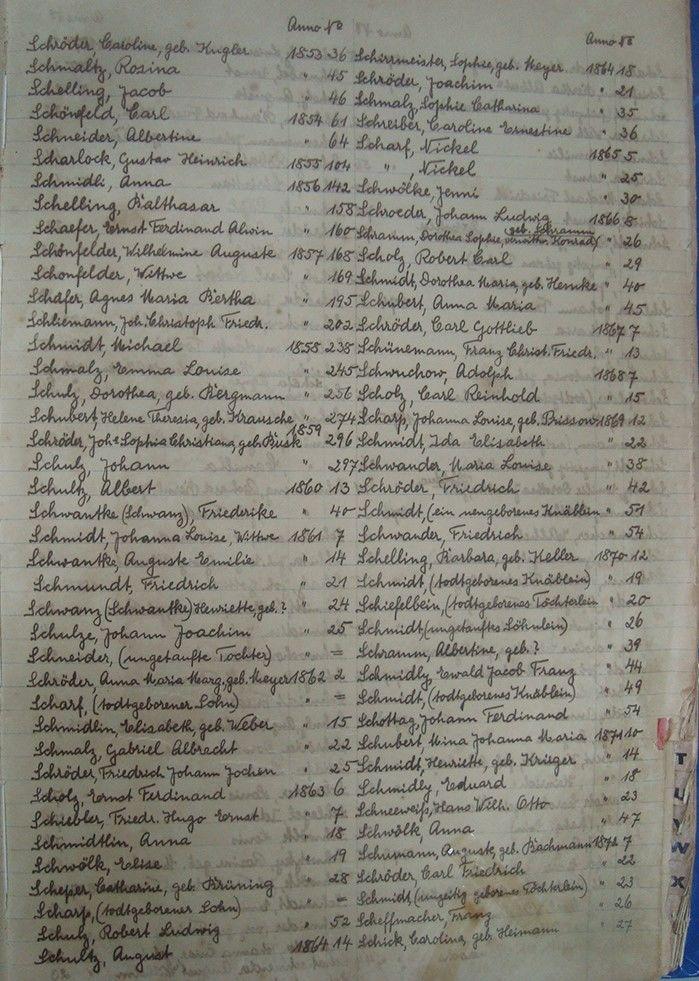 Anno No
Schröder, Caroline, geb. Kugler 1853 36
Schmaltz, Rosina " 45
Schelling, Jacob " 46
Schönfeld, Carl 1854 61
Schneider, Albertine " 64
Scharlock, Gustav Heinrich 1855 104
Schmidli, Anna 1856 142
Schelling, Balthasar " 158
Schaefer, Ernst Ferdinand Alwin " 160
Schönfelder, Wilhelmine Auguste 1857 168
Schonfelder, Wittwe " 169
Schäfer, Agnes Maria Bertha " 195
Schliemann, Joh. Christoph Friedr. " 202
Schmidt, Michael 1858 238
Schmalz, Emma Louise " 245
Schulz, Dorothea, geb. Bergmann " 256
Schubert, Helene Theresia, geb. Krausche " 274
Schröder, Joh. Sophia Christiana, geb. 1859 296
Schulz, Johann " 297
Schultz, Albert 1860 13
Schwantke (Schwanz), Friederike " 40
Schmidt, Johanna Louise, Wittwe 1861 7
Schwantke, Auguste Emilie " 14
Schmundt, Friedrich " 21
Schwanz (Schwantke) Henriette, geb. ? " 24
Schulze, Johann Joachim " 25
Schneider, (ungetaufte Tochter) " =
Schröder, Anna Maria Marg., geb. Meyer 1862 2
Scharf, (todtgeborener Sohn) " =
Schmidlin, Elisabeth, geb. Weber " 15
Schmalz, Gabriel Albrecht " 22
Schröder, Friedrich Johann Jochen " 25
Scholz, Ernst Ferdinand 1863 6
Schiebler, Friedr. Hugo Ernst " 7
Schmidtlin, Anna " 18
Schwölk, Elise " 19
Scheper, Catharine, geb. Brüning " 28
Scharp, (todtgeborener Sohn) " =
Schulz, Robert Ludwig " 52
Schultz, August 1864 14
Anno No
Schirrmeister, Sophie, geb. Meyer 1864 18
Schröder, Joachim " 21
Schmalz, Sophie Catharina " 35
Schreiber, Caroline Ernestine " 36
Scharf, Nickel 1865 5
" , Nickel " 25
Schwölke, Jenni " 30
Schroeder, Johann Ludwig 1866 8
geb. Schramm
Schramm, Dorothea Sophie, Konrad) " 26
Scholz, Robert Carl " 29
Schmidt, Dorothea Maria, geb. Hemke " 40
Schubert, Anna Maria " 45
Schröder, Carl Gottlieb 1867 7
Schünemann, Franz Christ. Friedr. " 13
Schwuchow, Adolph 1868 7
Scholz, Carl Reinhold " 15
Scharp, Johanna Louise, geb. Brissow 1869 12
Schmidt, Ida Elisabeth " 22
Schwander, Maria Louise " 38
Schröder, Friedrich " 42
Schmidt, (ein neugeborenes Knäblein " 51
Schwander, Friedrich " 54
Schelling, Barbara, geb. Keller 1870 12
Schmidt, (todtgeborenes Knäblein) " 19
Schiefelbein, (todtgeborenes Töchterlein " 20
Schmidt, (ungetauftes Söhnlein) " 26
Schramm, Albertine, geb. ? " 39
Schmidly, Ewald Jacob Franz " 44
Schmidt, (todtgeborenes Knäblein) " 49
Schottag, Johann Ferdinand " 54
Schubert Mina Johanna Maria 1871 10
Schmidt, Henriette, geb. Krieger " 14
Schmidly, Eduard " 18
Schneeweiß, Hans Wilh. Otto " 23
Schwölk, Anna " 47
Schumann, Auguste, geb. Bachmann 1872 7
Schröder, Carl Friedrich " 22
Schmidt, (unzeitig geborenes Töchterlein) " 23
Scheffmacher, Franz " 26
Schick, Carolina, geb. Heimann " 27
T
W
X